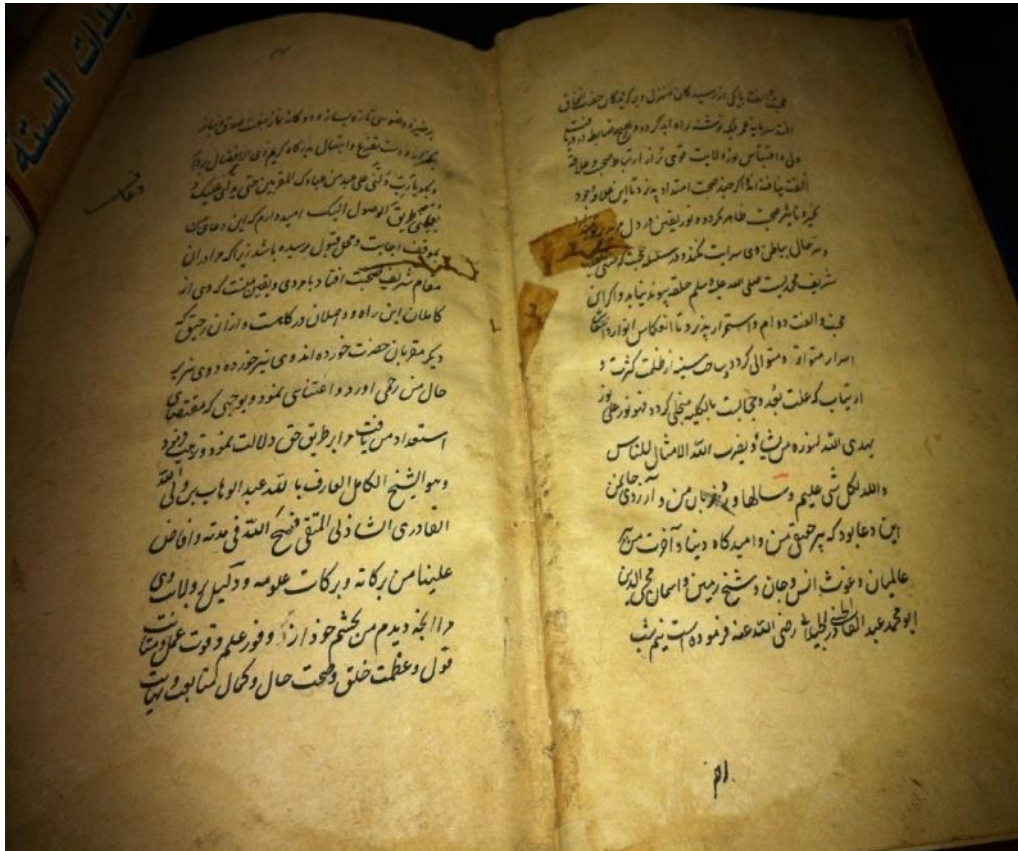 محبت و الفت با یکی از رسیدگان منزل و برگزیدگان حضرت اتفاق
افتد سرمایه عمر و توشه راه ابد گردد و هیچ ضابطه در دریافت
و اقتباس نور ولایت قوی تر از ارتباط محبت و علاقه
الفت نیافته اند اگر چند صحبت امتداد پذیرد تا این علاقه خود
ظاهر نکرده و نور یقین در دل
حال بباطن وی سرایت نکند و در سلسله محبت که
شریف محمد یست صلی الله علیه و سلم حلقه پیوند نیابد و اگر این
محبت و الفت دوام و استمرار پذیرد تا انعکاس انوار
اسرار متواتر و متوالی گردد و ساحت سینه از ظلمت کثرت و
ارتیاب که علت بعد و حجابست بالکلیه منجلی گردد فهو نور علی نور
یهدی الله لنوره من یشاء و یضرب الله الامثال للناس
والله بکل شی علیم و سالها ورد زبان من و آرزوی جان من
این دعا بود که پیر حقیقی من و امیدگاه دنیا و آخرت من پیر
عالمیان و غوث انس و جان و شیخ زمین و اسمان محی الدین
ابو محمد عبد القادر الجیلانی رضی الله عنه فرموده است نیم شب
ام
برخیزد وضوی تازه بسازد و دوگانه نماز بصدق و نیاز
بگذارد و دست تضرع و ابتهال بدرگاه کریم ذی الافضال بردارد
و بگوید یا رب دلنی علی عبد من عبادک المقربین حتی یدلنی علیک و
یعلمنی طریق الوصول الیک امیدوارم که این دعای من
بموقف اجابت و محل قبول رسیده باشد زیرا که مرا در ان
مقام شریف صحبت افتاد با مردی و یقین منست که وی از
کاملان این راه و واصلان درگاهست و از ان رحیق که
دیگر مقربان حضرت خورده اند وی نیز خورده و وی نیز به
حال من رحمی اورد و اعتنائی نمود و بوجهی که مقتضای
استعداد من یافت مرا بر طریق حق دلالت نمود و تربیت فرمود
و هو الشیخ الکامل العارف بالله عبد الوهاب بن ولی الله
القادری الشاذلی المتقی فسح الله فی مدته و افاض
علینا من برکاته و برکات علومه و دلیل بر ولایت وی
مرا انچه دیدم من بچشم خود از وفور علم و قوت عمل و متانت
قول و عظمت خلق و صحت حال و کمال متابعت و نهایت